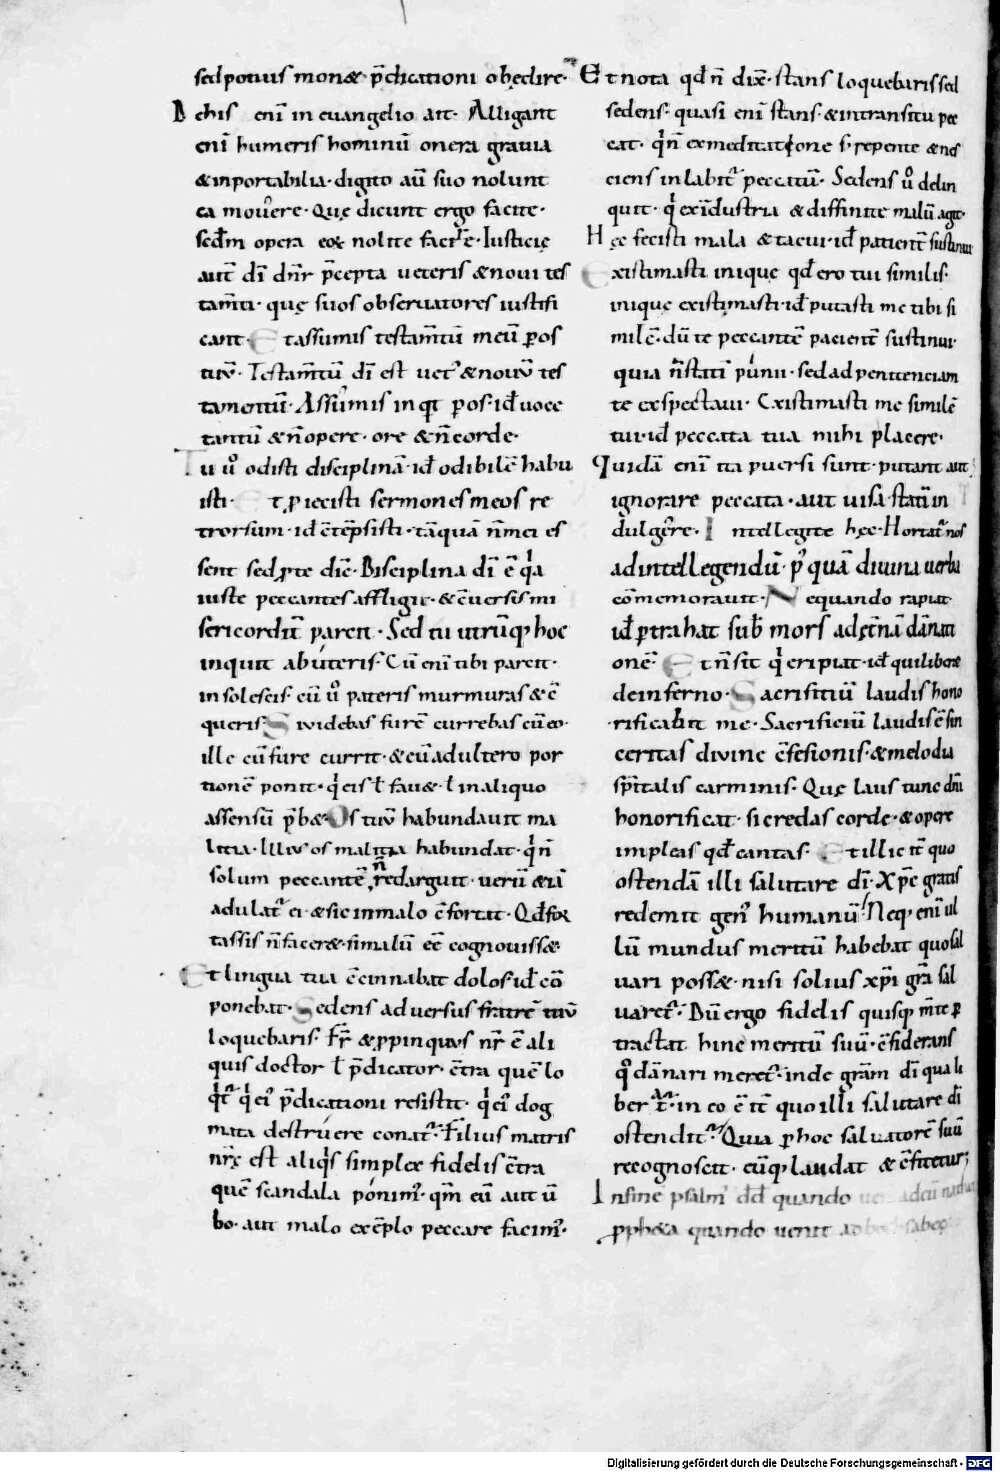 sed potius monæ p̄dicationi obędire·
De his enī in euangelio ait· Alligant
enī humeris hominū onera grauia
& inportabilia· digito aū suo nolunt
ea mouere· Quę dicunt ergo facite·
secd̄m opera eoꝝ nolite facere· Iusticię
aut̄ dī dn̄r p̄cepta ueteris & noui tes
tam̄ti· quę suos obseruatores iustifi
cant Et assumis testam̄tū meū ꝑ os
tuū· Testam̄tū dī est uet᾽ & nouū tes
tamentū· Assumis inqͥt ꝑ os· id̄ uoce
tantū & n̄ opere· ore & n̄ corde·
Tu ů odisti disciplinā· id̄ odibilē habu
isti· Et ꝓiecisti sermones meos re
trorsum· id̄ c̄tēpsisti· tāquā n̄ mei es
sent sed ꝑ te dic̄· Disciplina dī ē qͥa
iuste peccantes affligit· & c̄uersis mi
sericordit̄ parcit· Sed tu utrūq; hoc
inquit abúteris· Cū enī tibi parcit·
insolescis· cū ů pateris murmuras & c̄
queris Si uidebas furē currebas cū eo·
ille cū fure currit· & cū adultero por
tionē ponit· qͥ eis ł fauæ ł in aliquo
assensū p̄bæ· Os tuū habundauit ma
litia· Illiuˢ os malitia habundat· qͥ n̄
solum peccantē n̄ redarguit· uerū & iā
adulat᷑ ei· & sic in malo c̄fortat· Qd̄ for
tassis n̄ faceræ· si malū eē cognouissæ·
Et lingua tua c̄cinnabat dolos· id̄ cō
ponebat· Sedens aduersus fratrē tuū
loquebaris· Fr̄ & ꝓpinquus nr̄ ē ali
quis doctor ł p̄dicator· c̄tra quē lo
qͥt᷑ qͥ ei᾽ p̄dicationi resistit· qͥ ei᾽ dog
mata destruere conat᷑· Filius matris
nr̄ę est aliqͥs simplex fidelis c̄tra
quē scandala pónim᾽· qm̄ eū aut ū
bo· aut malo exēplo peccare facim᾽·
Et nota qd̄ n̄ dix̄· stans loquebaris sed
sedens· quasi enī stans· & in transitu pec
cat· qͥ n̄ ex meditatione s; repente & nes
ciens in labit᷑ peccatū· Sedens ů delin
quit· qͥ ex īdustria & diffinite malū agit·
Hęc fecisti mala & tacui· id̄ patient̄ sustinui
Existimasti inique qd̄ ero tui similis·
inique existimasti· id̄ putasti me tibi si
milē· dū te peccantē pacient̄ sustinui·
quia n̄ statī púnii· sed ad penitenciam
te exspectaui· Existimasti me similē
tui· id̄ peccata tua mihi placere·
Quidā enī ita ꝑuersi sunt· putant aut
ignorare peccata· aut uisa statī in
dulgere· Intellegite hęc· Hortat᷑ nos
ad intellegendū· p᾽ quā diuina uerba
cōmemorauit· Nequando rapiat
id̄ ꝑtrahat sub mors ad ęt̄nā dānati
onē· Et n̄ sit qͥ eripiat· id̄ qui liberæ
de inferno· Sacrificiū laudis hono
rificabit me· Sacrificiū laudis ē sin
ceritas diuine c̄fesionis· & melodia
sp̄italis carminis· Quę laus tunc dn̄i
honorificat· si credas corde· & opere
impleas qd̄ cantas· Et illic it̄ quo
ostendā illi salutare dī· Xp̄c gratis
redemit gen᾽ humanū· Neq; enī ul
lū mundus meritū habebat quo sal
uari possæ· nisi solius xp̄i grā sal
uaret᷑· Dū ergo fidelis quisq; m̄te ꝑ
tractat hinc meritū suū· c̄siderans
qͦ dānari meret᷑· inde grām dī qua li
berat᷑· in eo ē it̄ quo illi salutare dī
ostendit᷑· Quia ꝑ hoc saluatorē suū
recognoscit· eūq; laudat & c̄fitetur;
In fine psalm᾽ dd̄ quando ue ad eū nathan
ꝓphæa quando uenit ad bersabee